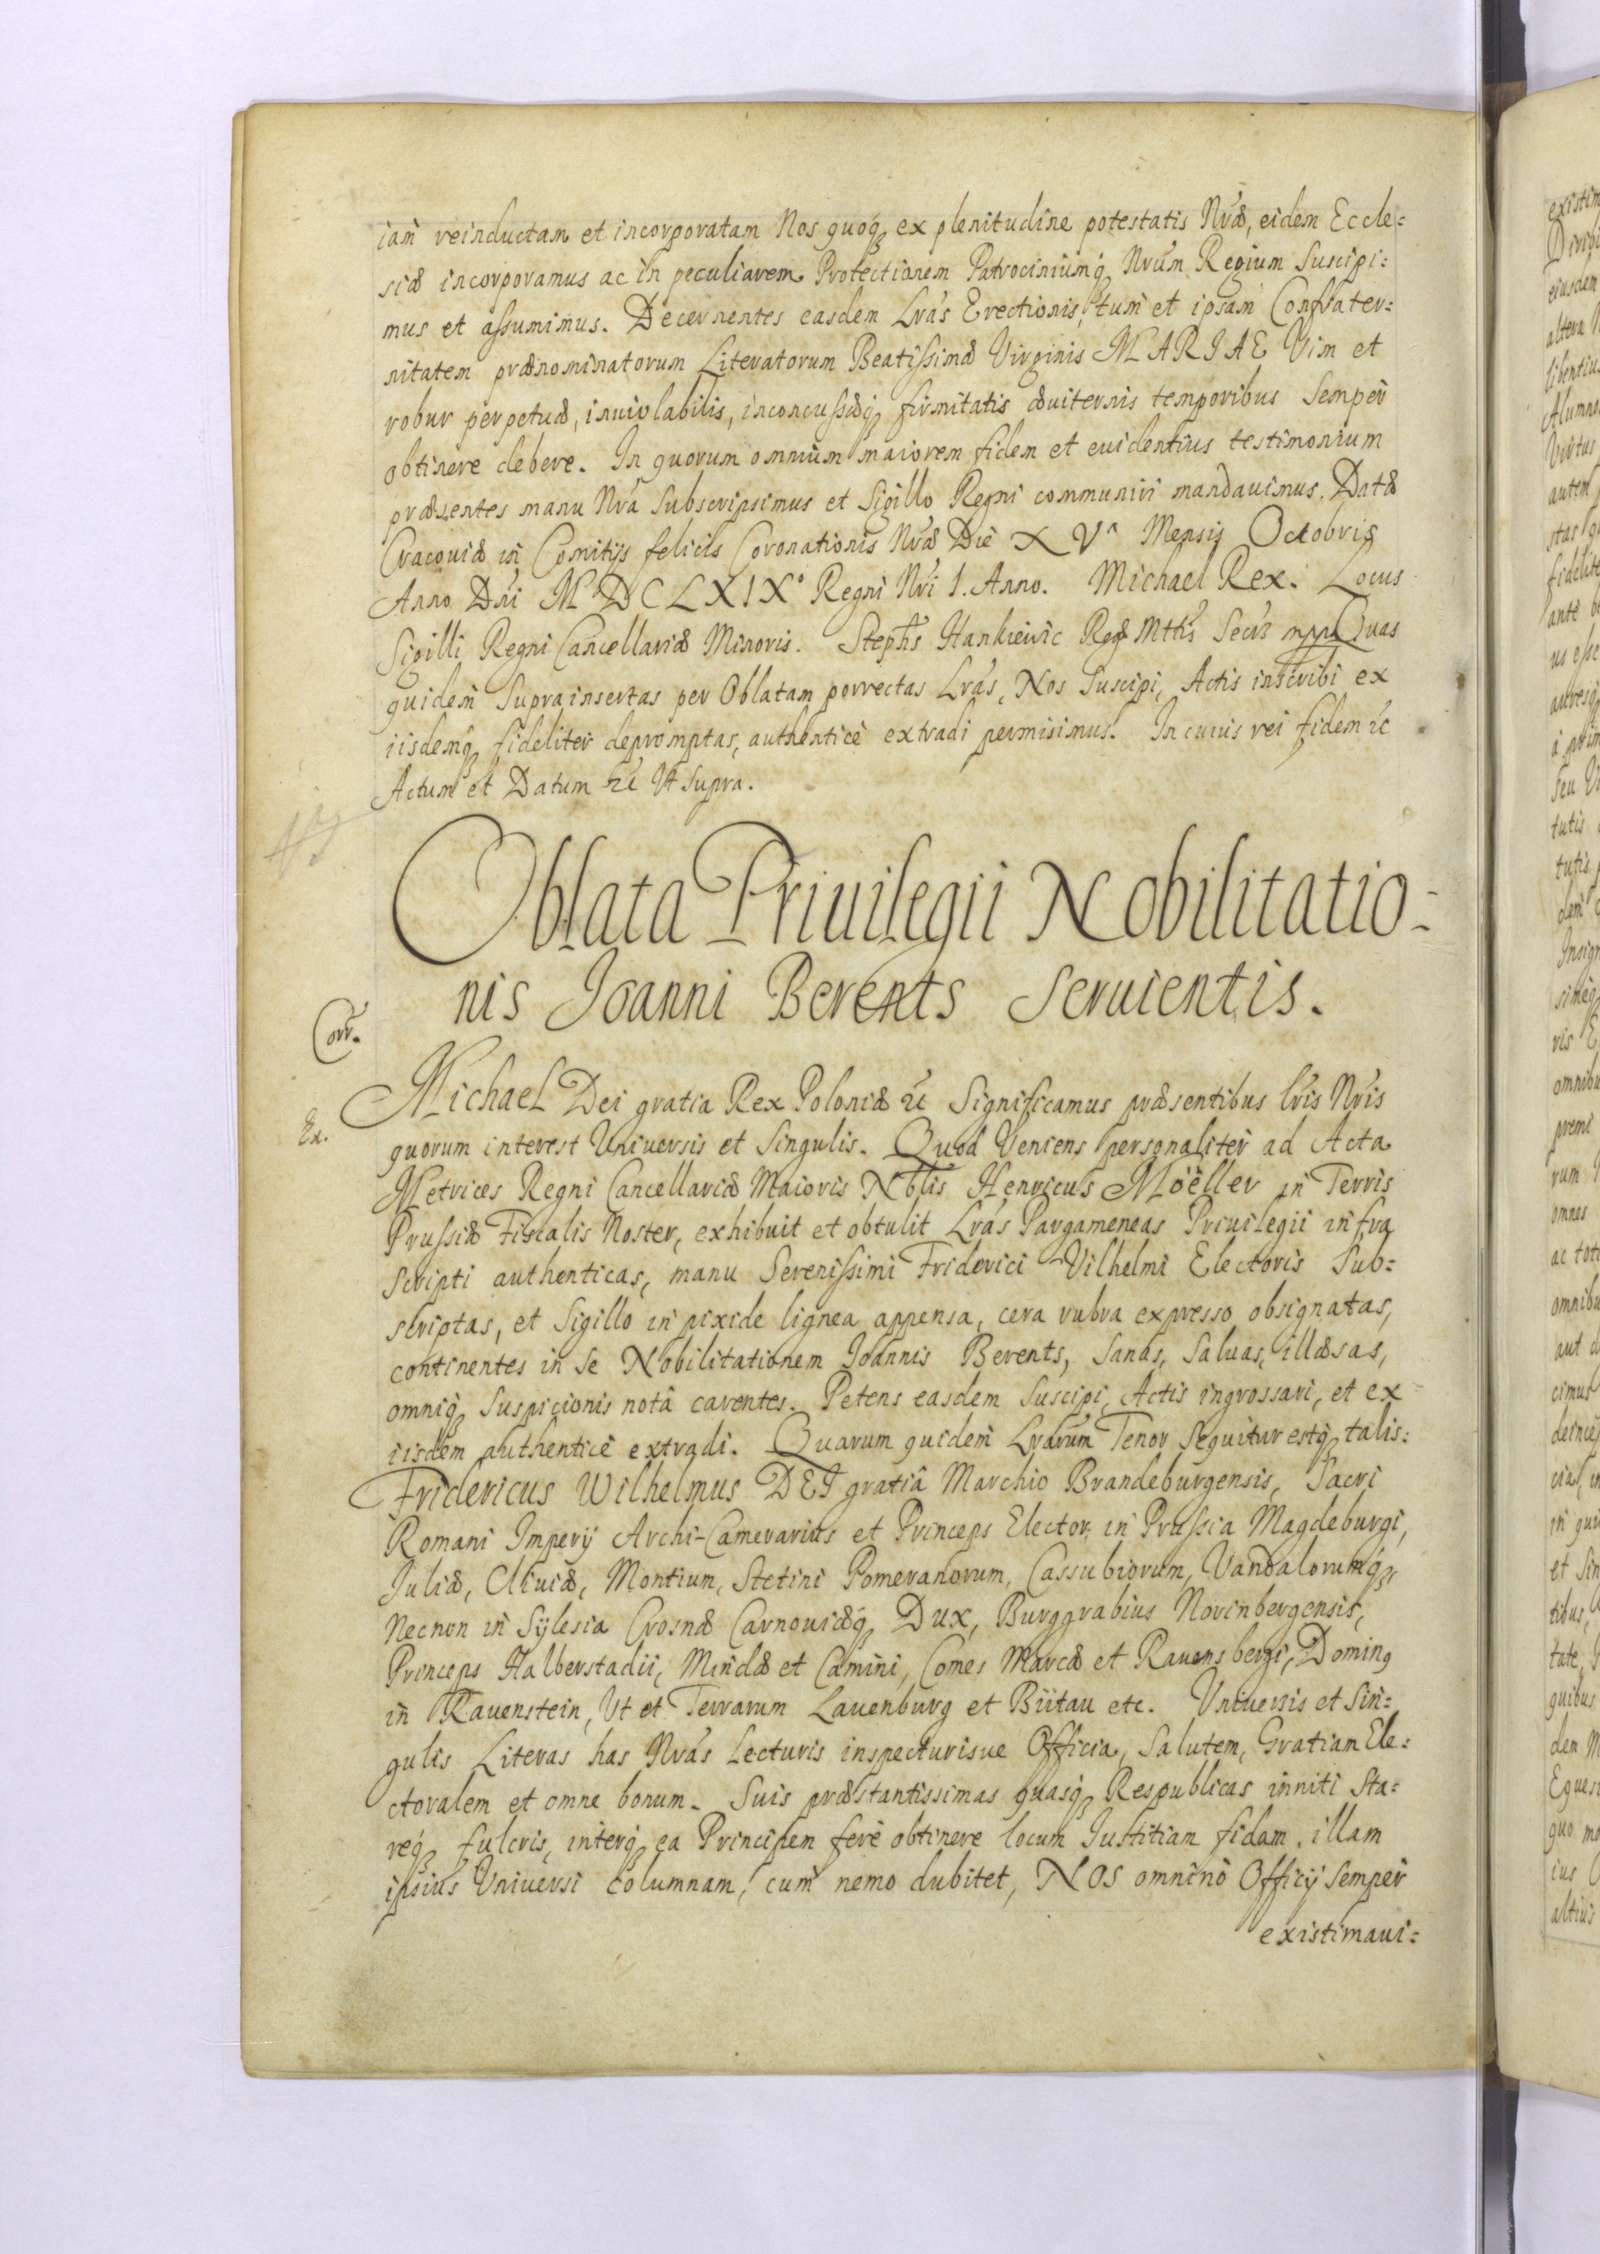 iam reinductam et incorporatam Nos quoq; ex plenitudine potestatis Nrae, eidem Eccle=
siae incorporamus ac in peculiarem Protectionem Patrociniumq; Nrum Regium suscipi=
mus et assumimus. Decernentes easdem Lras Erectionis, tum et ipsam Confrater=
nitatem praenominatorum Literatorum Beatissimae Virginis MARIAE Vim et
robur perpetuae, inuiolabilis, inconcussaeq; firmitatis aeuiternis temporibus semper
obtinere debere. In quorum omnium maiorem fidem et euidentius testimonium
praesentes manu Nra subscripsimus et Sigillo Regni communiri mandauimus. Datae
Cracouiae in Comitijs felicis Coronationis Nrae Die XVa Mensis Octobris
Anno Dni MoDCLXIXo Regni Nri 1. Anno. Michael Rex. Locus
Sigilli Regni Cancellariae Minoris. Stephs Hankieuic Regae Mttis Secrs mpp Quas
quidem suprainsertas per Oblatam porrectas Lras, Nos suscipi, Actis inscribi ex
iisdemq; fideliter depromptas, authenticè extradi permisimus. In cuius rei fidem etc
Actum et Datum etc Vt supra.
Oblata Priuilegii Nobilitatio=
nis Joanni Berents seruientis.
Corr.
Ex.
Michael Dei gratia Rex Poloniae etc Significamus praesentibus lris Nris
quorum interest Vniuersis et singulis. Quod Veniens personaliter ad Acta
Metrices Regni Cancellariae Maioris Nbtlis Henricus Möeller in Terris
Prussiae Fiscalis Noster, exhibuit et obtulit Lras Pargameneas Priuilegii infra
scripti authenticas, manu Serenissimi Friderici Vilhelmi Electoris sub=
scriptas, et Sigillo in pixide lignea appensa, cera rubra expresso obsignatas,
continentes in se Nobilitationem Joannis Berents, sanas, saluas, illaesas,
omniq; suspicionis notâ carentes. Petens easdem suscipi, Actis ingrossari, et ex
iisdem authenticè extradi. Quarum quidem Lrarum Tenor sequitur estq; talis:
Fridericus Wilhelmus DEI gratiâ Marchio Brandeburgensis, Sacri
Romani Imperij Archi-Camerarius et Princeps Elector, in Prussia Magdeburgi,
Juliae, Cliuiae, Montium, Stetini Pomeranorum, Cassubiorum, Vandalorumq;,
Necnon in Sylesia Crosnae Carnouiaeq; Dux, Burggrabius Norinbergensis,
Princeps Halberstadii, Mindae et Camini, Comes Marcae et Rauensbergi, Dominq
in Rauenstein, Vt et Terrarum Lauenburg et Bütau etc. Vniuersis et sin=
gulis Literas has Nras lecturis inspecturisue Officia, Salutem, Gratiam Ele=
ctoralem et omne bonum. Suis praestantissimas quasq; Respublicas inniti sta=
req; fulcris, interq; ea Principem ferè obtinere locum Iustitiam fidam, illam
ipsius Vniuersi columnam, cum nemo dubitet, NOS omninò Officij semper
existimaui=